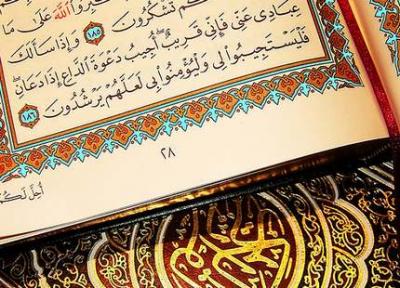 كَبِّرُوا۟ ٱللَّهَ عَلَىٰ مَا
كُمْ تَشْكُرُونَ ١٨٥ وَإِذَا سَأَلَكَ
عِبَادِى عَنِّى فَإِنِّى قَرِيبٌ أُجِيبُ دَعْوَةَ ٱلدَّاعِ إِذَا دَعَانِ
فَلْيَسْتَجِيبُوا۟ لِى وَلْيُؤْمِنُوا۟ بِى لَعَلَّهُمْ يَرْشُدُونَ ١٨٦
٢٨
أُحِلَّ لَكُ